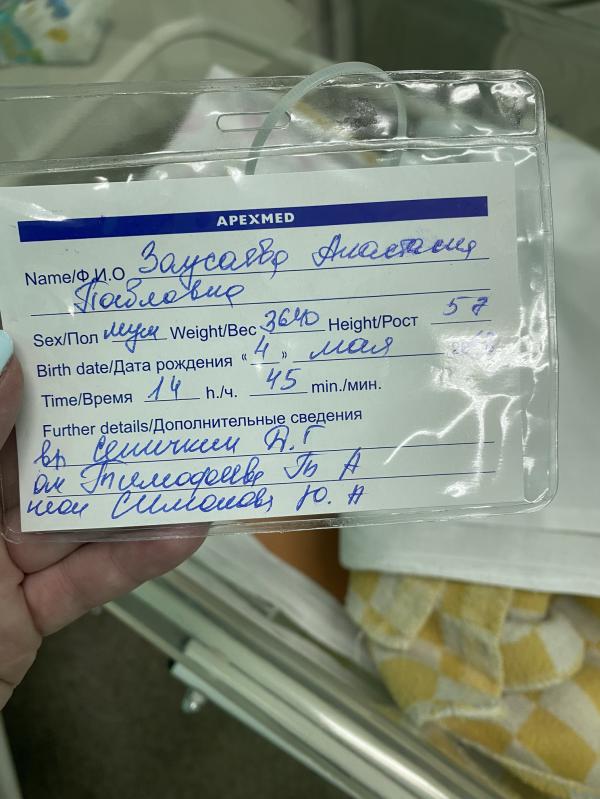 APEXMED
Name/Ф.И.О Заусаева Анастасия
Павловна
Sex/Пол муж Weight/Вес 3640 Height/Рост 57
Birth date/Дата рождения «4» мая
Time/Время 14 h./ч. 45 min./мин.
Further details/Дополнительные сведения
вр Сеничкин А.Г
ак Тимофеева Т А
Симонова Ю. А